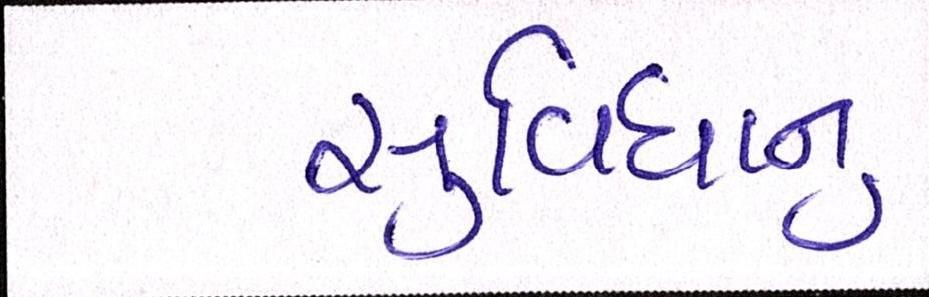 સુવિધાનુ